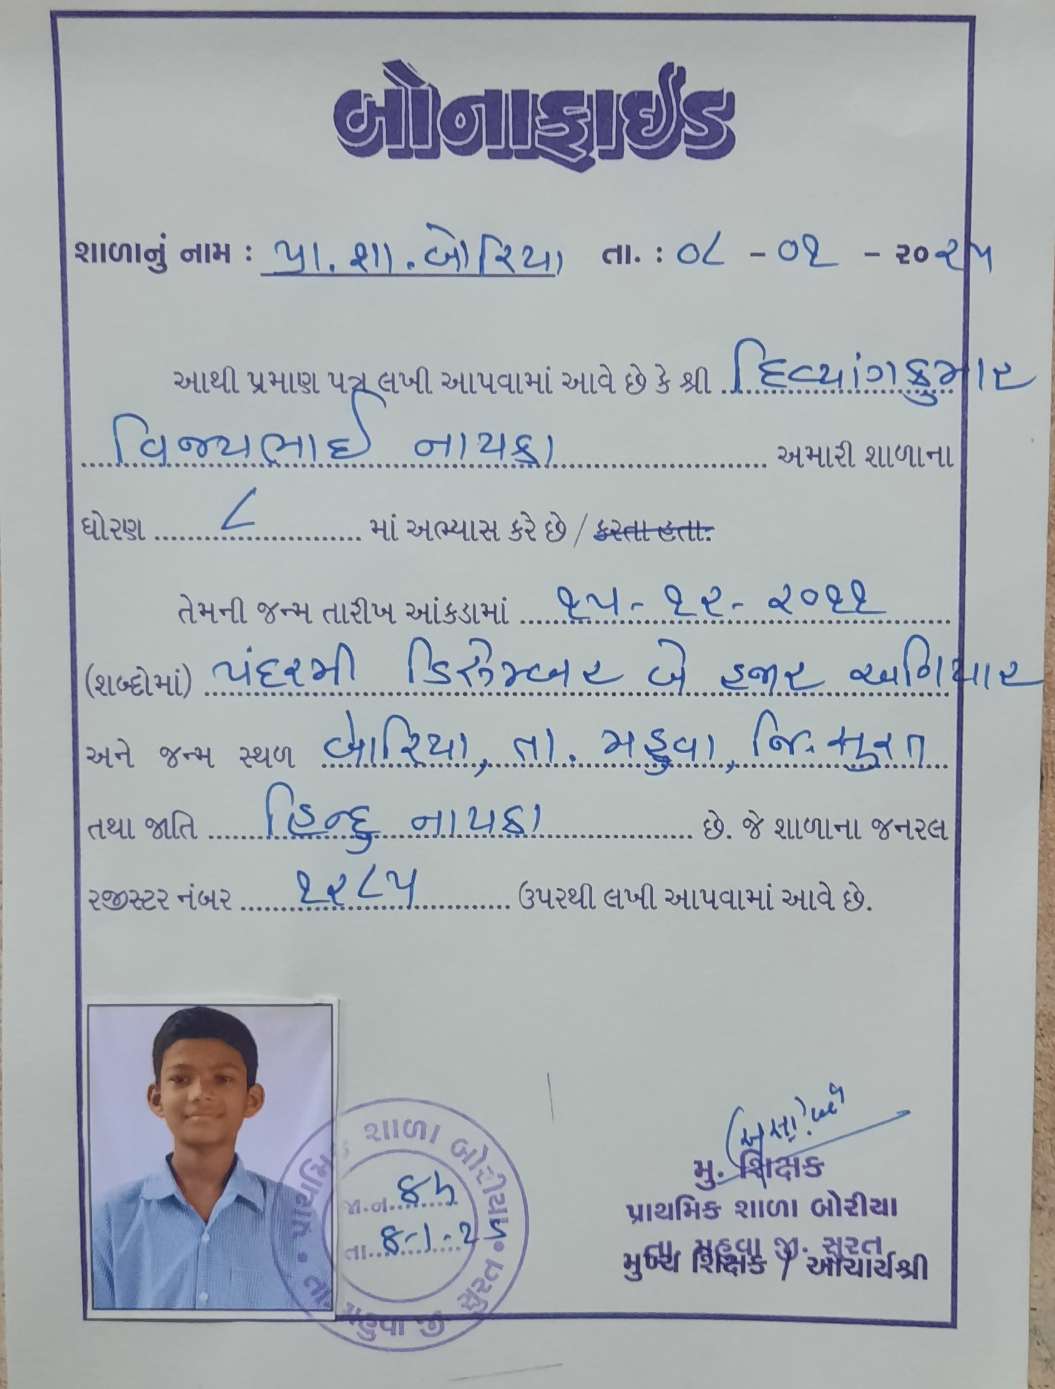 બોનાફાઈડ
શાળાનું નામ : પ્રા. શા. બોરિયા તા. : ૦૮ - ૦૧ - ૨૦૨૫
આથી પ્રમાણ પત્ર લખી આપવામાં આવે છે કે શ્રી દિવ્યાંગકુમાર
વિજયભાઈ નાયકા અમારી શાળાના
ધોરણ ૮ માં અભ્યાસ કરે છે / કરતા હતા.
તેમની જન્મ તારીખ આંકડામાં ૧૫-૧૨-૨૦૧૧
(શબ્દોમાં) પંદરમી ડિસેમ્બર બે હજાર અગિયાર
અને જન્મ સ્થળ બોરિયા, તા. મહુવા, જિ. સુરત
તથા જાતિ હિન્દુ નાયકા છે. જે શાળાના જનરલ
રજીસ્ટર નંબર ૧૨૮૫ ઉપરથી લખી આપવામાં આવે છે.
પ્રાથમિક શાળા બોરીયા
જા.ન.
તા. 8-1-25
તા. મહુવા જી. સુરત
મુ. શિક્ષક
પ્રાથમિક શાળા બોરીયા
તા. મહુવા જી. સુરત
મુખ્ય શિક્ષક / આચાર્યશ્રી